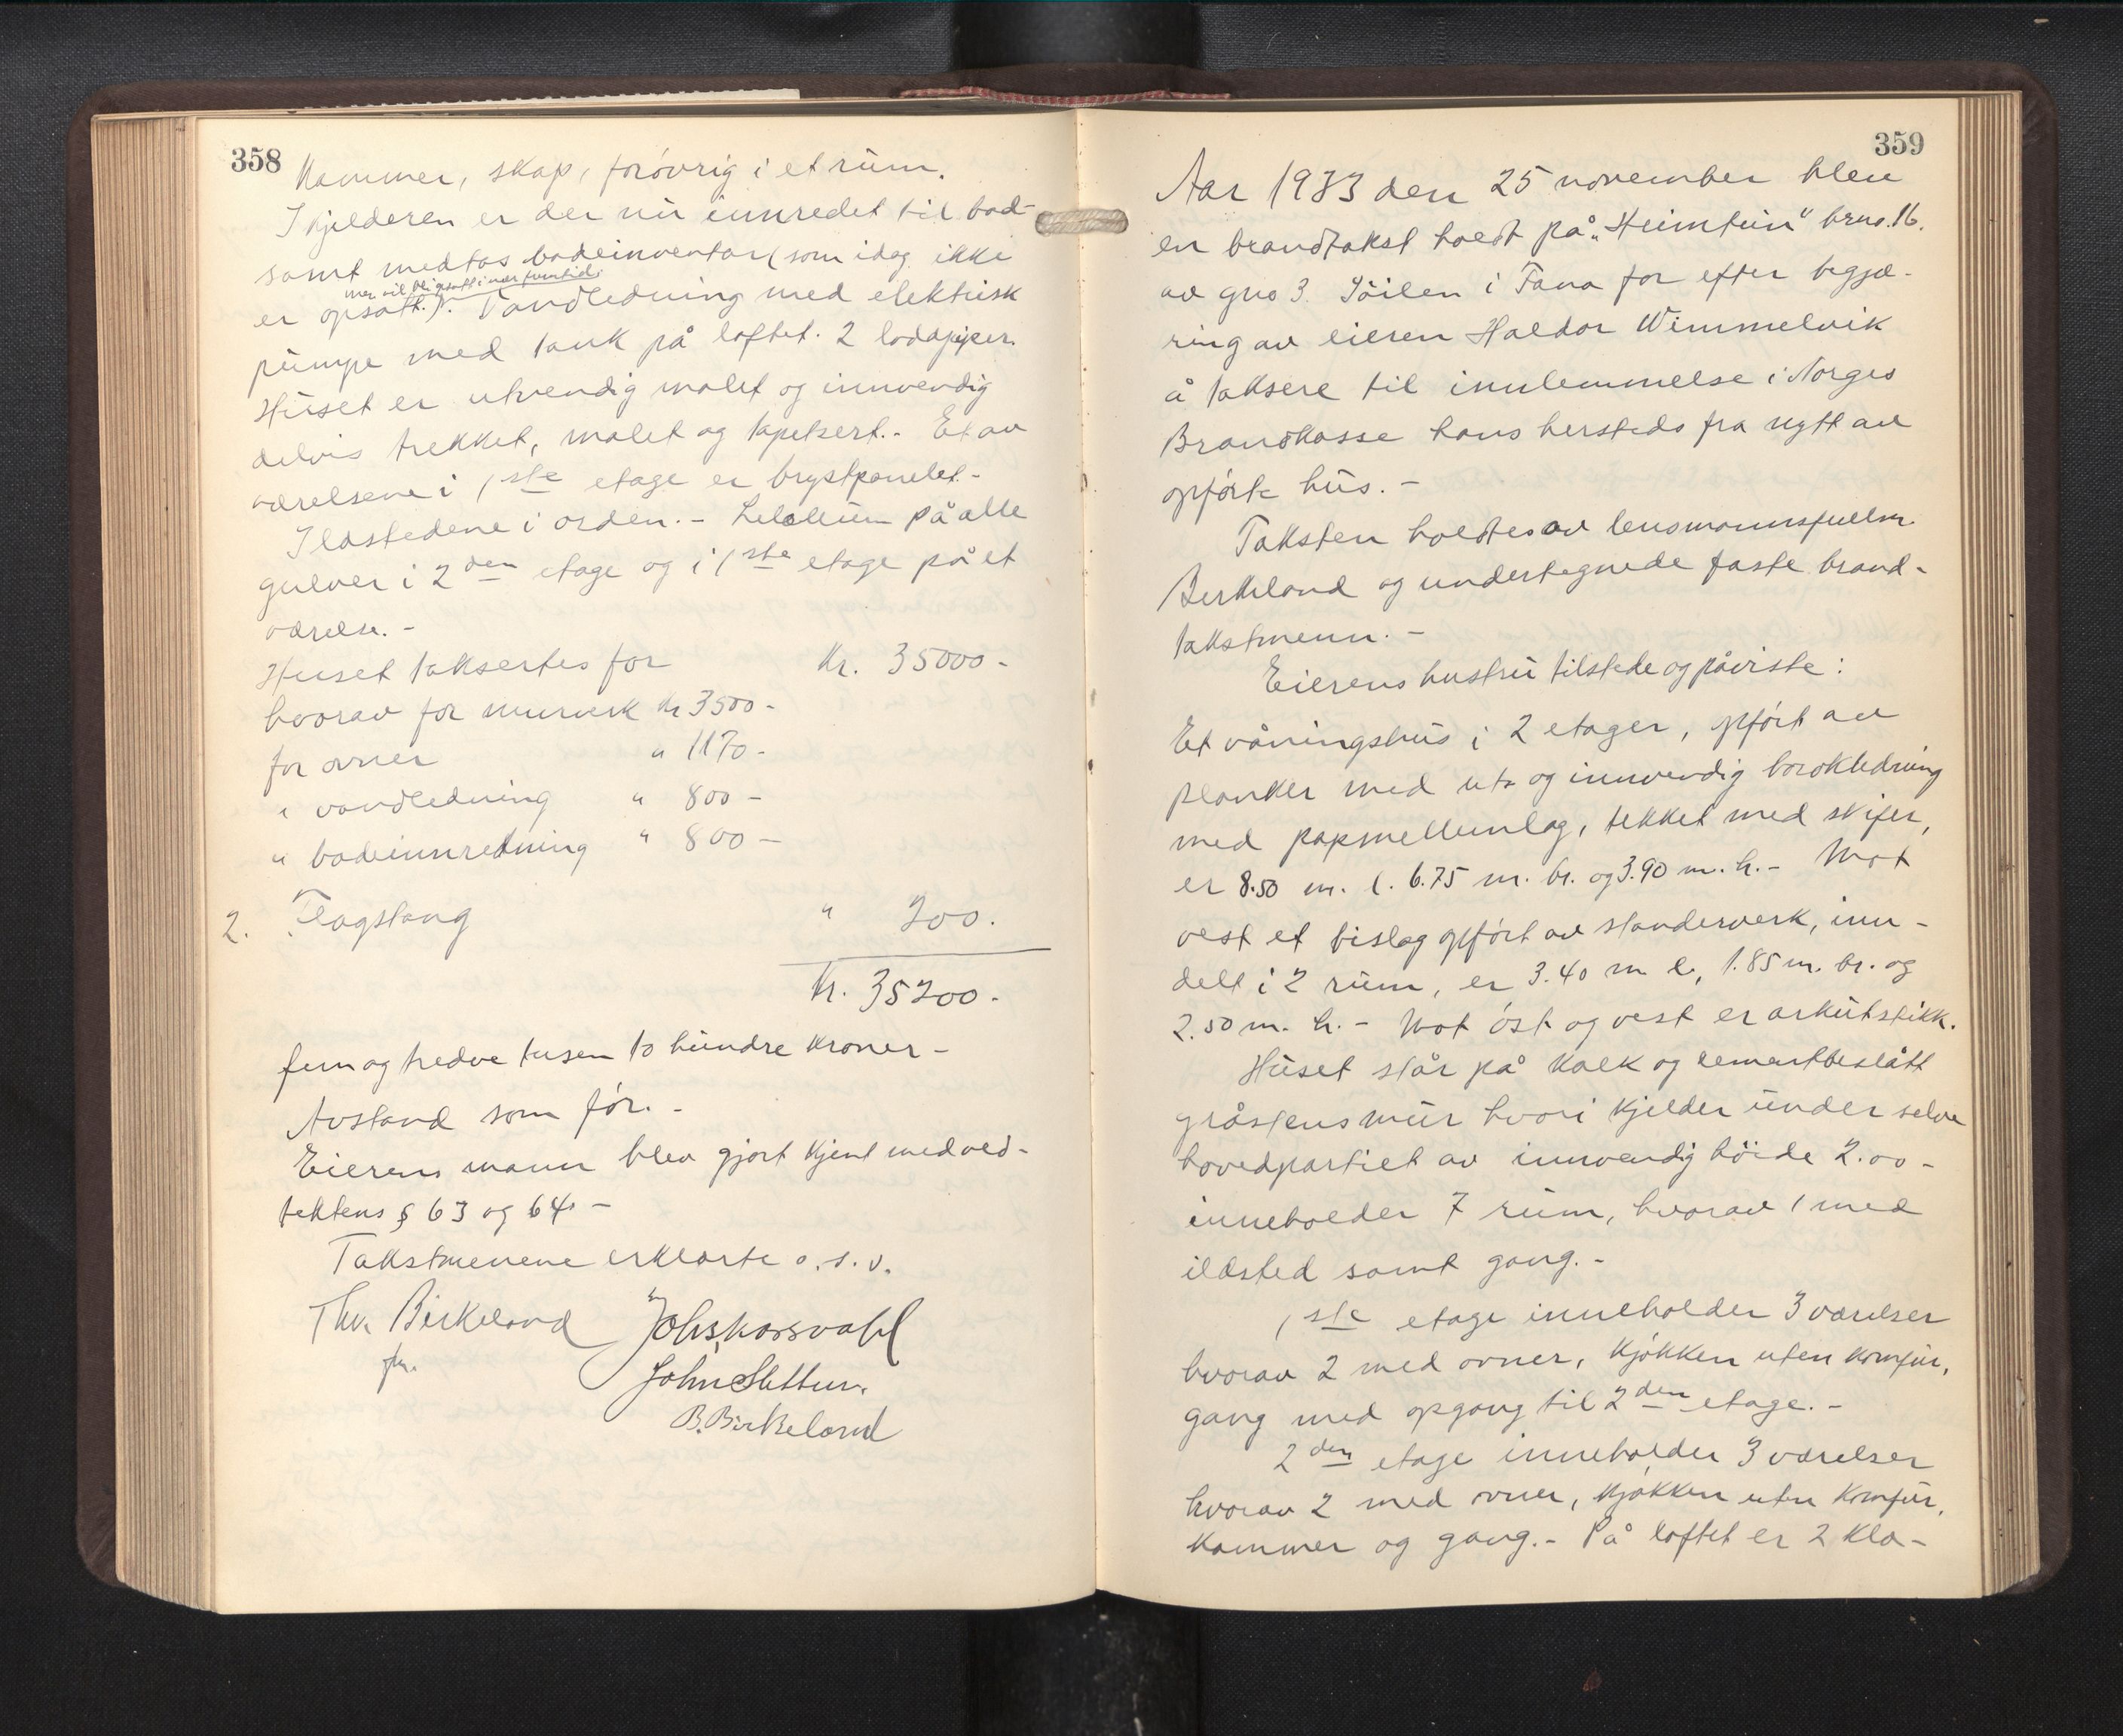 358
Kammer, skap, forøvrig i et rum.
I kjelderen er der nu innredet til bad-
samt medtas badeinventar (som idag ikke
men vil bli opsatt i nær fremtid
er opsatt.). Vandledning med elektrisk
pumpe med tank på loftet. 2 lodapiper.
Huset er utvendig malet og innvendig
delvis trekket, malet og tapetsert.- Et av
værelsene i 1ste etage er brystpanelet.-
Ildstedene i orden.- Linoleum på alle
gulver i 2den etage og i 1ste etage på et
værelse.-
Huset taksertes for Kr. 35000-
hvorav for murverk Kr 3500-
for ovner " 1170-
" vandledning " 800-
" badeinnredning " 800-
2. Flagstang " 200.
Kr. 35200-
fem og tredve tusen to hundre kroner-
Avstand som før.-
Eierens mann blev gjort kjent med ved-
tektens § 63 og 64.-
Takstmenene erklærte o.s.v.
Thv. Birkeland Johs Korsvold
fm.
John Slettun.
B. Birkeland
359
Aar 1933 den 25 november blev
en brandtakst holdt på „Heimtun" brno. 16.
av gno 3. Søilen i Fana for efter begjæ-
ring av eieren Haldor Wimmelvik
å taksere til innlemmelse i Norges
Brandkasse hans hersteds fra nytt av
opførte hus.-
Taksten holdtes av lensmannsfullm.
Birkeland og undertegnede faste brand-
takstmenn.-
Eierens hustru tilstede og påviste:
Et våningshus i 2 etager, opført av
planker med ut- og innvendig bordkledning
med papmellemlag, tekket med skifer,
er 8.50 m. l. 6.75 m. br. og 3.90 m. h.- Mot
vest et bislag opført av standerverk, inn-
delt i 2 rum, er 3.40 m l., 1.85 m. br. og
2.50 m. h.- Mot øst og vest er arkutstikk.
Huset står på kalk og cementbeslått
gråstensmur hvori kjelder under selve
hovedpartiet av innvendig høide 2.00-
inneholder 7 rum, hvorav 1 med
ildsted samt gang.-
1ste etage inneholder 3 værelser
hvorav 2 med ovner, kjøkken uten komfur,
gang med opgang til 2den etage.-
2den etage inneholder 3 værelser
hvorav 2 med ovner, kjøkken uten komfur,
kammer og gang.- På loftet er 2 kla-